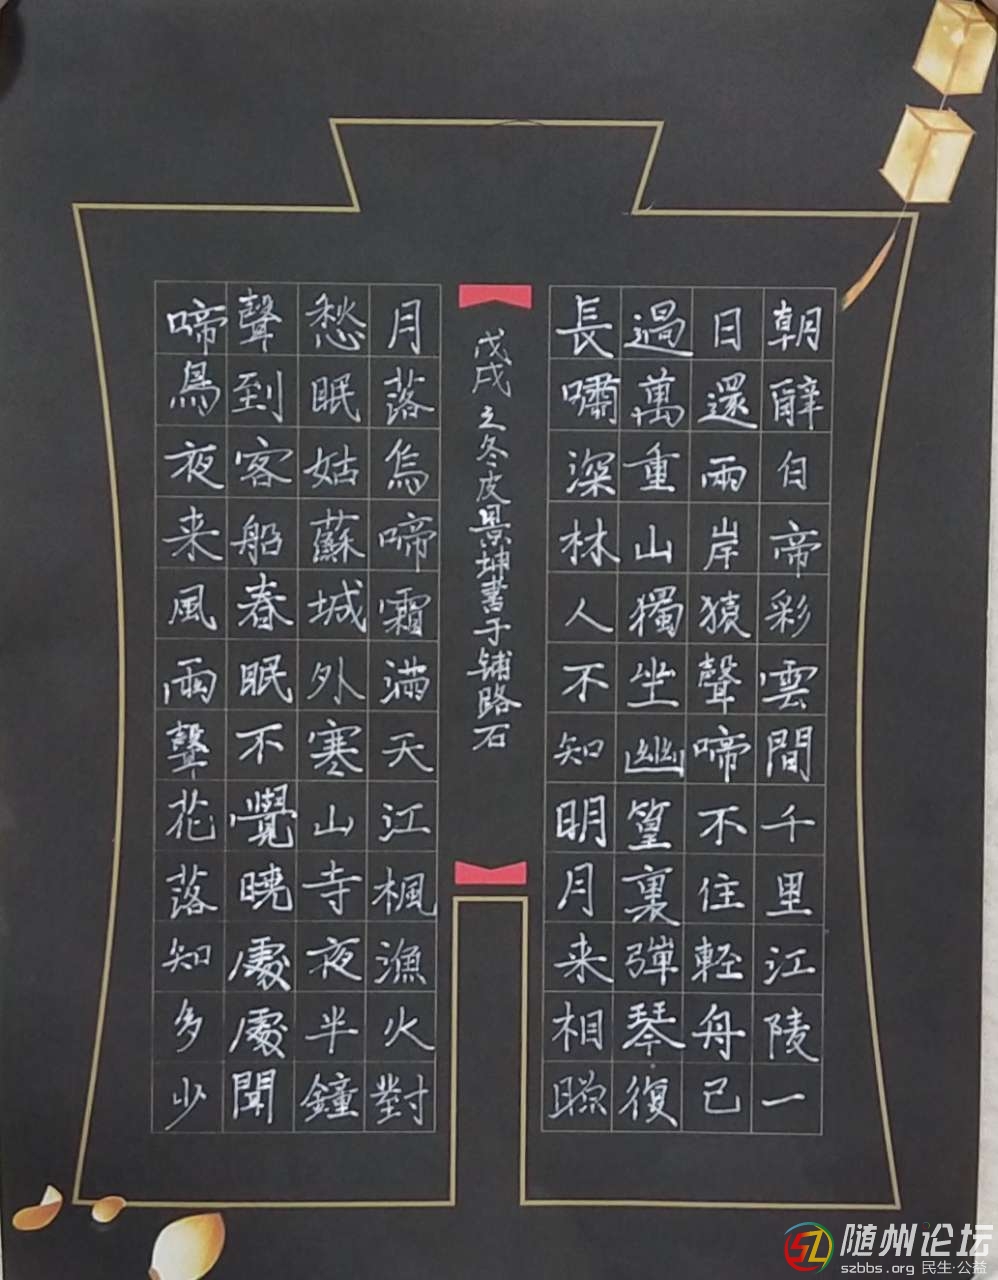 朝辭白帝彩雲間千里江陵一
日還兩岸猿聲啼不住輕舟已
過萬重山獨坐幽篁裏彈琴復
長嘯深林人不知明月来相照
戊戌之冬皮景坤書于铺路石
月落烏啼霜滿天江楓漁火對
愁眠姑蘇城外寒山寺夜半鐘
聲到客船春眠不覺曉處處聞
啼鳥夜来風雨聲花落知多少
随州论坛
szbbs.org 民生·公益